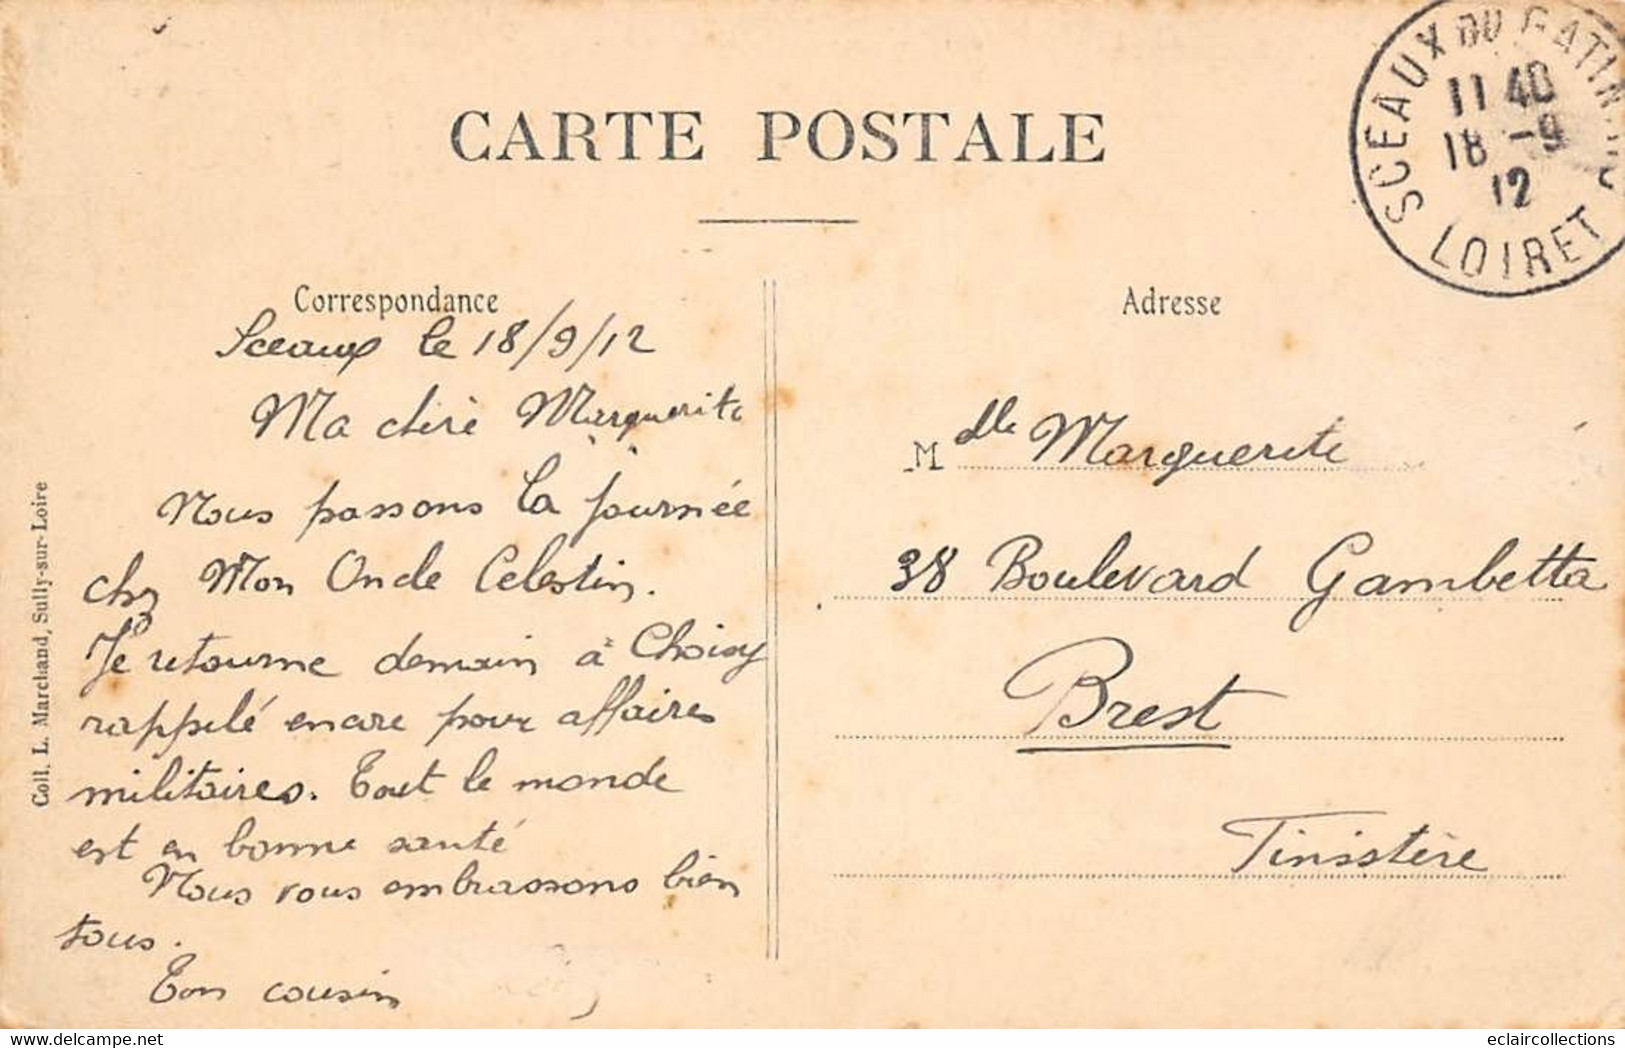 CARTE POSTALE
SCEAUX DU GATINAIS
11 40
18 -9
12
LOIRET
Correspondance
Adresse
Sceaux le 18/9/12
Ma chère Marguerite
Nous passons la journée
chez Mon Oncle Celestin.
Je retourne demain à Choisy
rappelé encore pour affaires
militaires. Tout le monde
est en bonne santé
Nous vous embrassons bien
tous.
Ton cousin
Mdlle Marguerite
38 Boulevard Gambetta
Brest
Finistère
Coll. L. Marchand, Sully-sur-Loire
eclaircollections